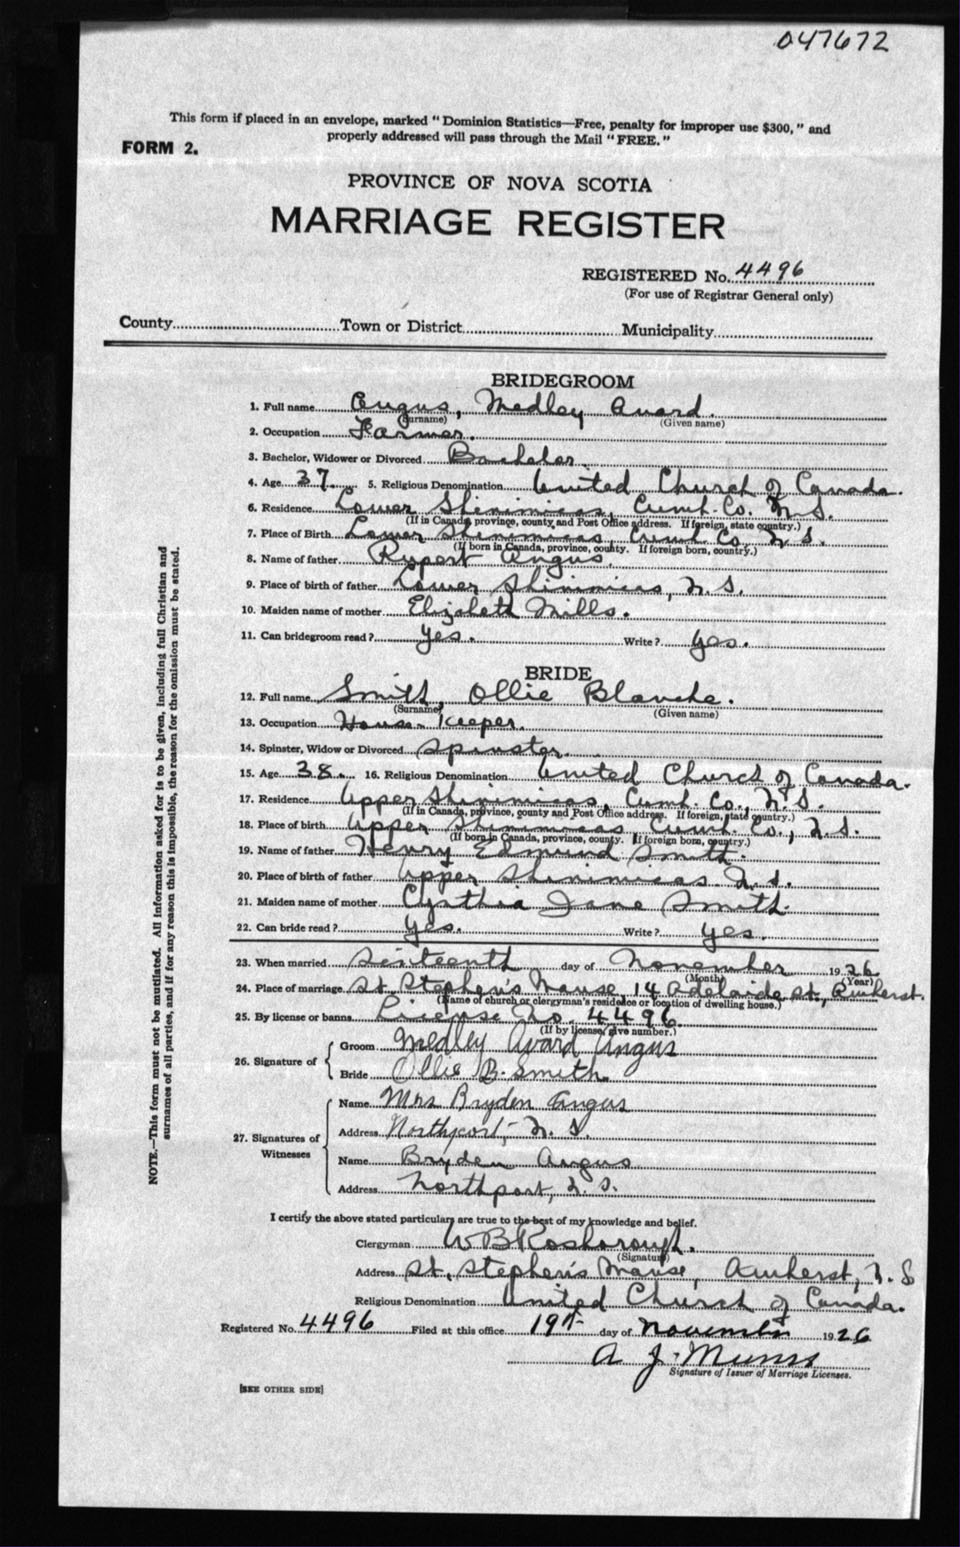 047672
This form if placed in an envelope, marked "Dominion Statistics—Free, penalty for improper use $300," and
properly addressed will pass through the Mail "FREE."
FORM 2.
PROVINCE OF NOVA SCOTIA
MARRIAGE REGISTER
REGISTERED No. 4496
(For use of Registrar General only)
County Town or District Municipality
BRIDEGROOM
1. Full name Angus, Medley Avard.
(Surname) (Given name)
2. Occupation Farmer.
3. Bachelor, Widower or Divorced Bachelor.
4. Age 37. 5. Religious Denomination United Church of Canada.
6. Residence Lower Shinimicas, Cumb. Co. N.S.
(If in Canada, province, county and Post Office address. If foreign, state country.)
7. Place of Birth Lower Shinimicas, Cumb Co, N.S.
(If born in Canada, province, county. If foreign born, country.)
8. Name of father Rupert Angus.
9. Place of birth of father Lower Shinimicas, N.S.
10. Maiden name of mother Elizabeth Mills.
11. Can bridegroom read? Yes. Write? Yes.
BRIDE
12. Full name Smith, Ollie Blanche.
(Surname) (Given name)
13. Occupation House Keeper.
14. Spinster, Widow or Divorced Spinster.
15. Age 38. 16. Religious Denomination United Church of Canada.
17. Residence Upper Shinimicas, Cumb. Co., N.S.
(If in Canada, province, county and Post Office address. If foreign, state country.)
18. Place of birth Upper Shinimicas Cumb. Co., N.S.
(If born in Canada, province, county. If foreign born, country.)
19. Name of father Henry Edmund Smith.
20. Place of birth of father Upper Shinimicas N.S.
21. Maiden name of mother Cynthia Jane Smith.
22. Can bride read? Yes. Write? Yes.
23. When married Sixteenth day of November 1926
(Month) (Year)
24. Place of marriage St. Stephen's Manse, 14 Adelaide St., Amherst.
(Name of church or clergyman's residence or location of dwelling house.)
25. By license or banns License No. 4496
(If by license, give number.)
26. Signature of
Groom Medley Avard Angus
Bride Ollie B. Smith.
27. Signatures of Witnesses
Name Mrs Bryden Angus
Address Northport, N.S.
Name Bryden Angus
Address Northport, N.S.
I certify the above stated particulars are true to the best of my knowledge and belief.
Clergyman W B Rosborough.
(Signature)
Address St. Stephen's Manse, Amherst, N.S
Religious Denomination United Church of Canada.
Registered No. 4496 Filed at this office 19th day of November 1926
A J. Munro
Signature of Issuer of Marriage Licenses.
[SEE OTHER SIDE]
NOTE.—This form must not be mutilated. All information asked for is to be given, including full Christian and
surnames of all parties, and if for any reason this is impossible, the reason for the omission must be stated.